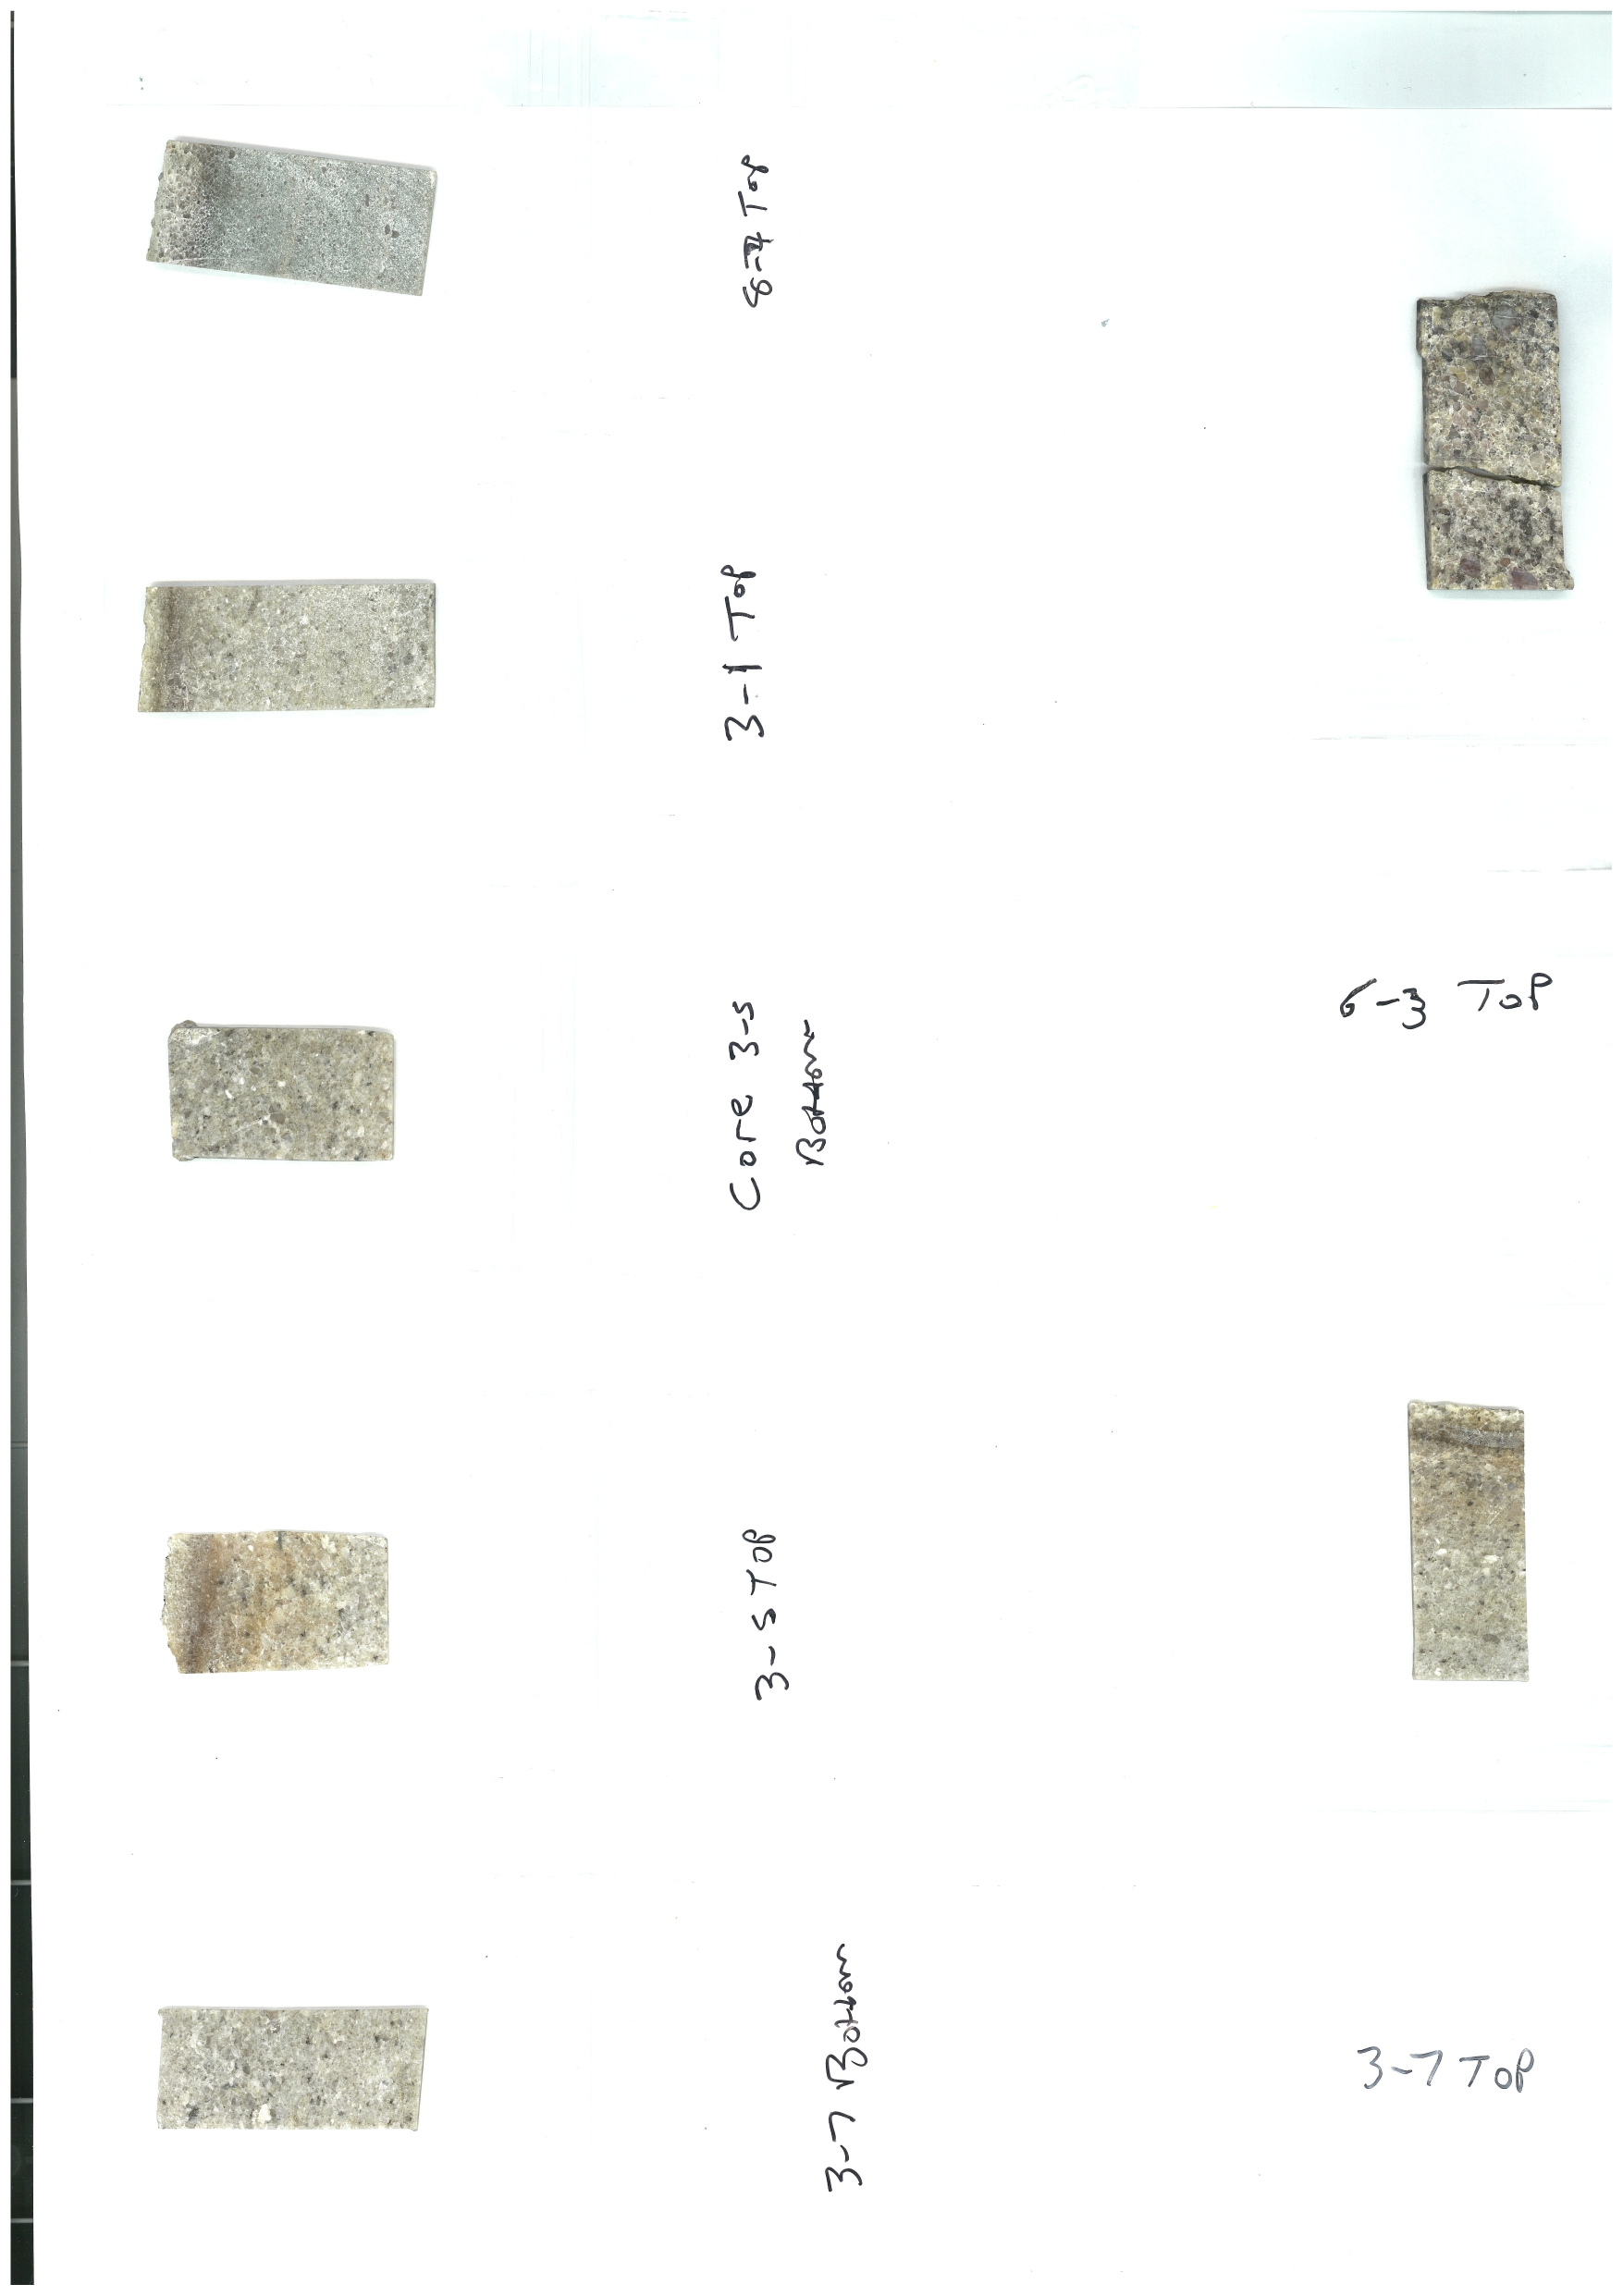 8-7 Top
3-1 Top
Core 3-5
Bottom
3-5 Top
3-7 Bottom
6-3 Top
3-7 Top